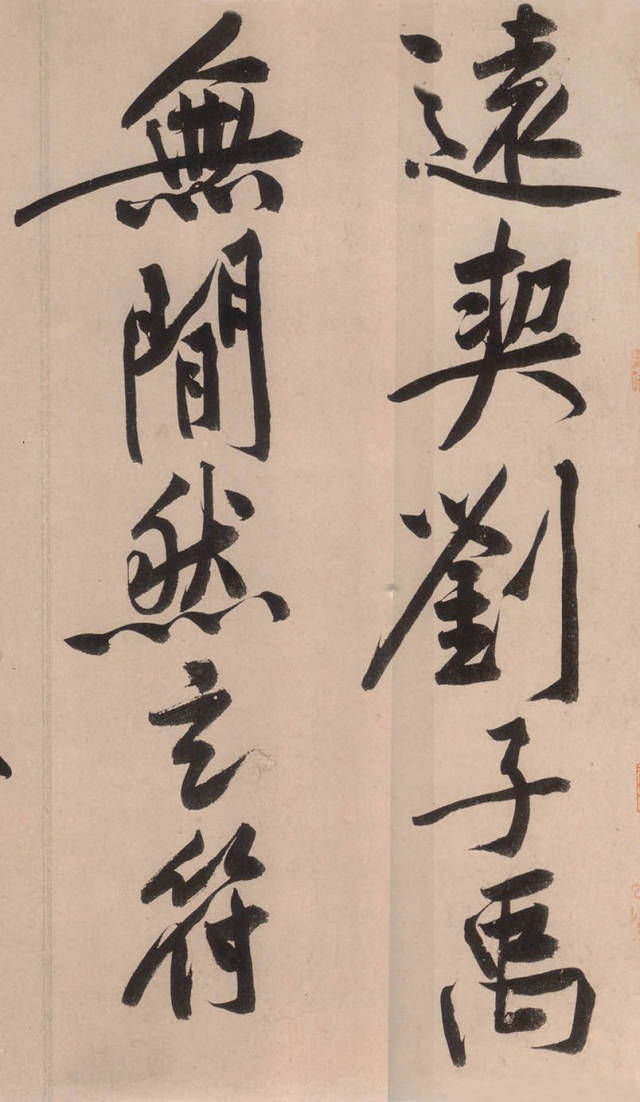 遠契劉子禹
無間然玄符